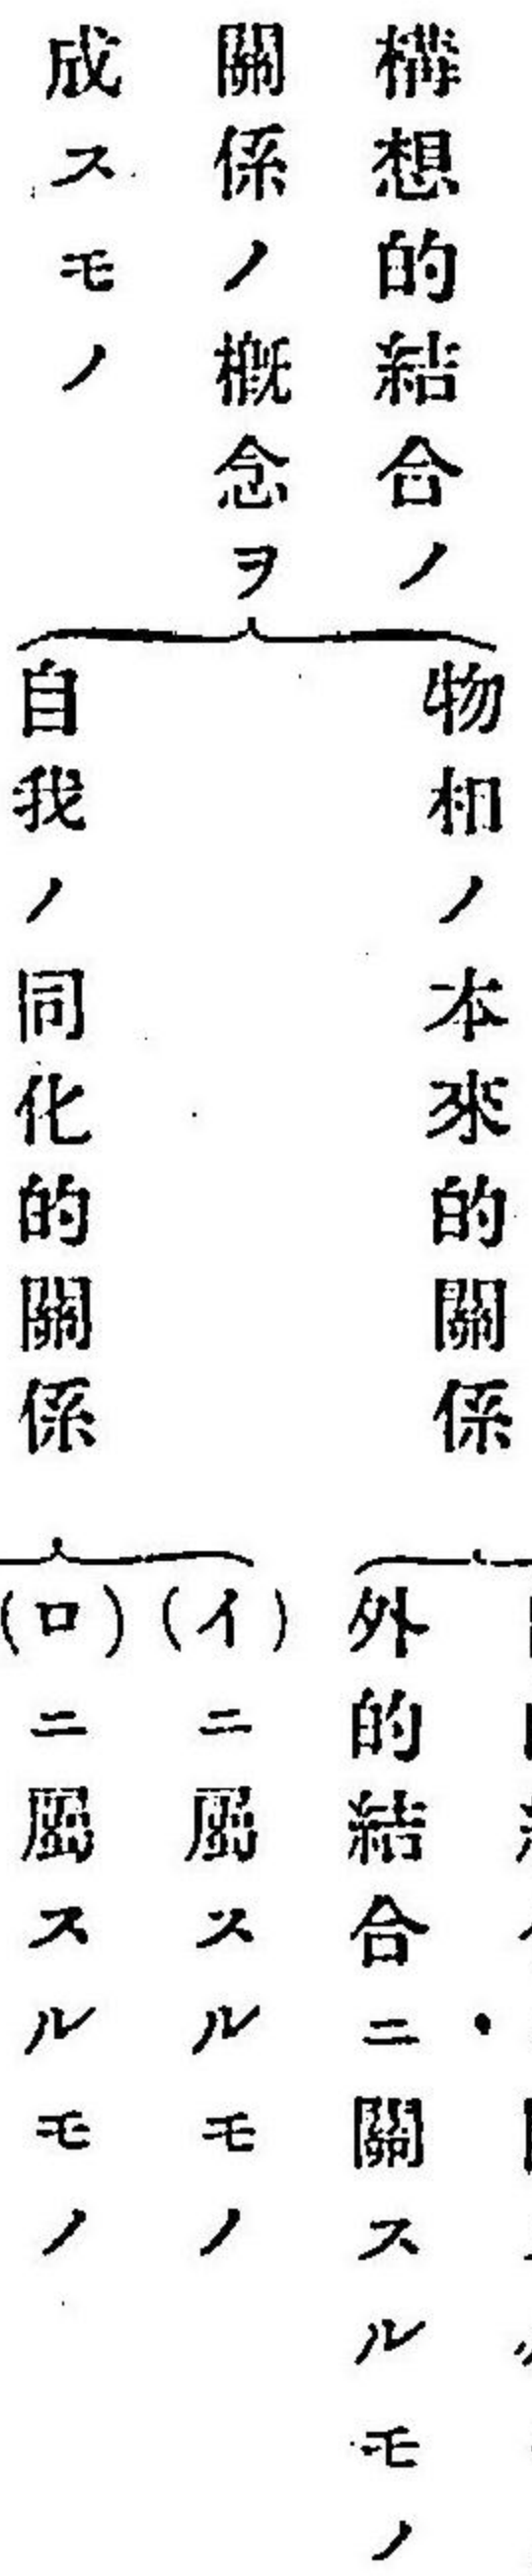 構想的結合ノ
關係ノ概念ヲ
成スモノ
物相ノ本來的關係
自我ノ同化的關係
外的結合ニ關スルモノ
(イ)ニ屬スルモノ
(ロ)ニ屬スルモノ